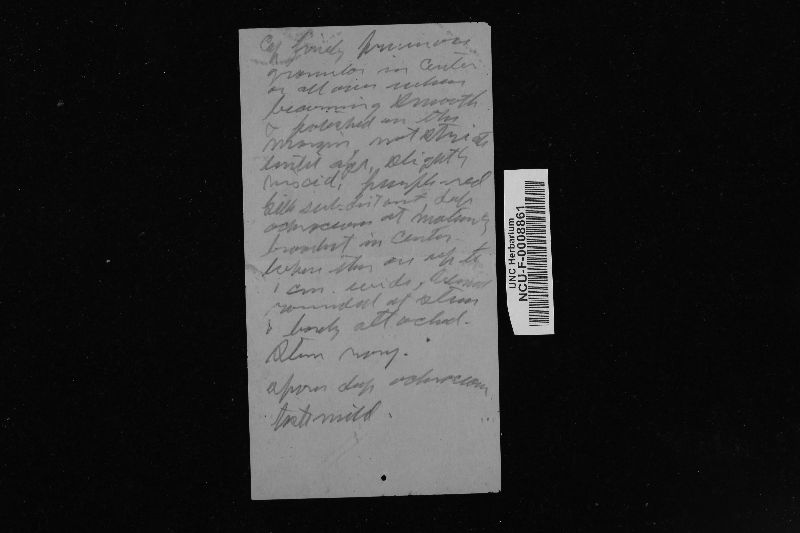 Cap finely pruinose
granular in center
or all over when
becoming smooth
& polished on the
margin, not striate
until age, slightly
viscid, purple-red
Gills sub-distant deep
ochraceous at maturity
broadest in center
where they are up to
1 cm. wide,
rounded at stem
& barely attached.
Stem rosy.
spores deep ochraceous
taste mild.
UNC Herbarium
NCU-F-0008861